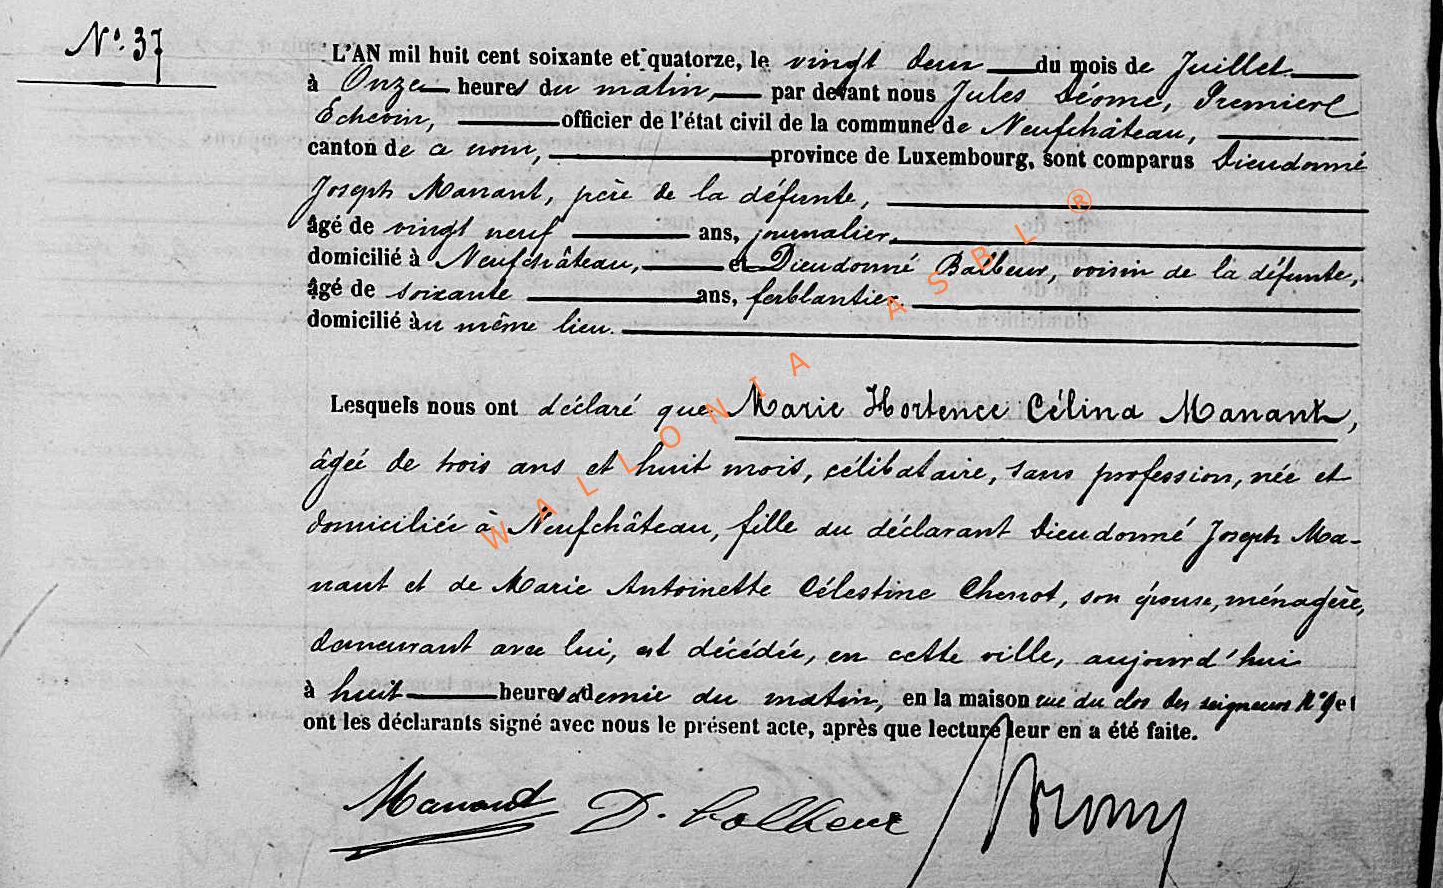 N°. 37
L'AN mil huit cent soixante et quatorze, le vingt deux du mois de Juillet
à Onze heures du matin, par devant nous Jules Déome, Premier
Echevin, officier de l'état civil de la commune de Neufchâteau,
canton de ce nom, province de Luxembourg, sont comparus Dieudonné
Joseph Manant, père de la défunte,
âgé de vingt neuf ans, journalier,
domicilié à Neufchâteau, et Dieudonné Balbeur, voisin de la défunte,
âgé de soixante ans, ferblantier
domicilié au même lieu.
Lesquels nous ont déclaré que Marie Hortence Célina Manant,
âgée de trois ans et huit mois, célibataire, sans profession, née et
domiciliée à Neufchâteau, fille du déclarant Dieudonné Joseph Ma-
nant et de Marie Antoinette Célestine Chenot, son épouse, ménagère,
demeurant avec lui, est décédée, en cette ville, aujourd'hui
à huit heures et demie du matin, en la maison rue du clos des seigneurs N° 9 et
ont les déclarants signé avec nous le présent acte, après que lecture leur en a été faite.
Manant D. Balbeur
WALLONIA ASBL ®